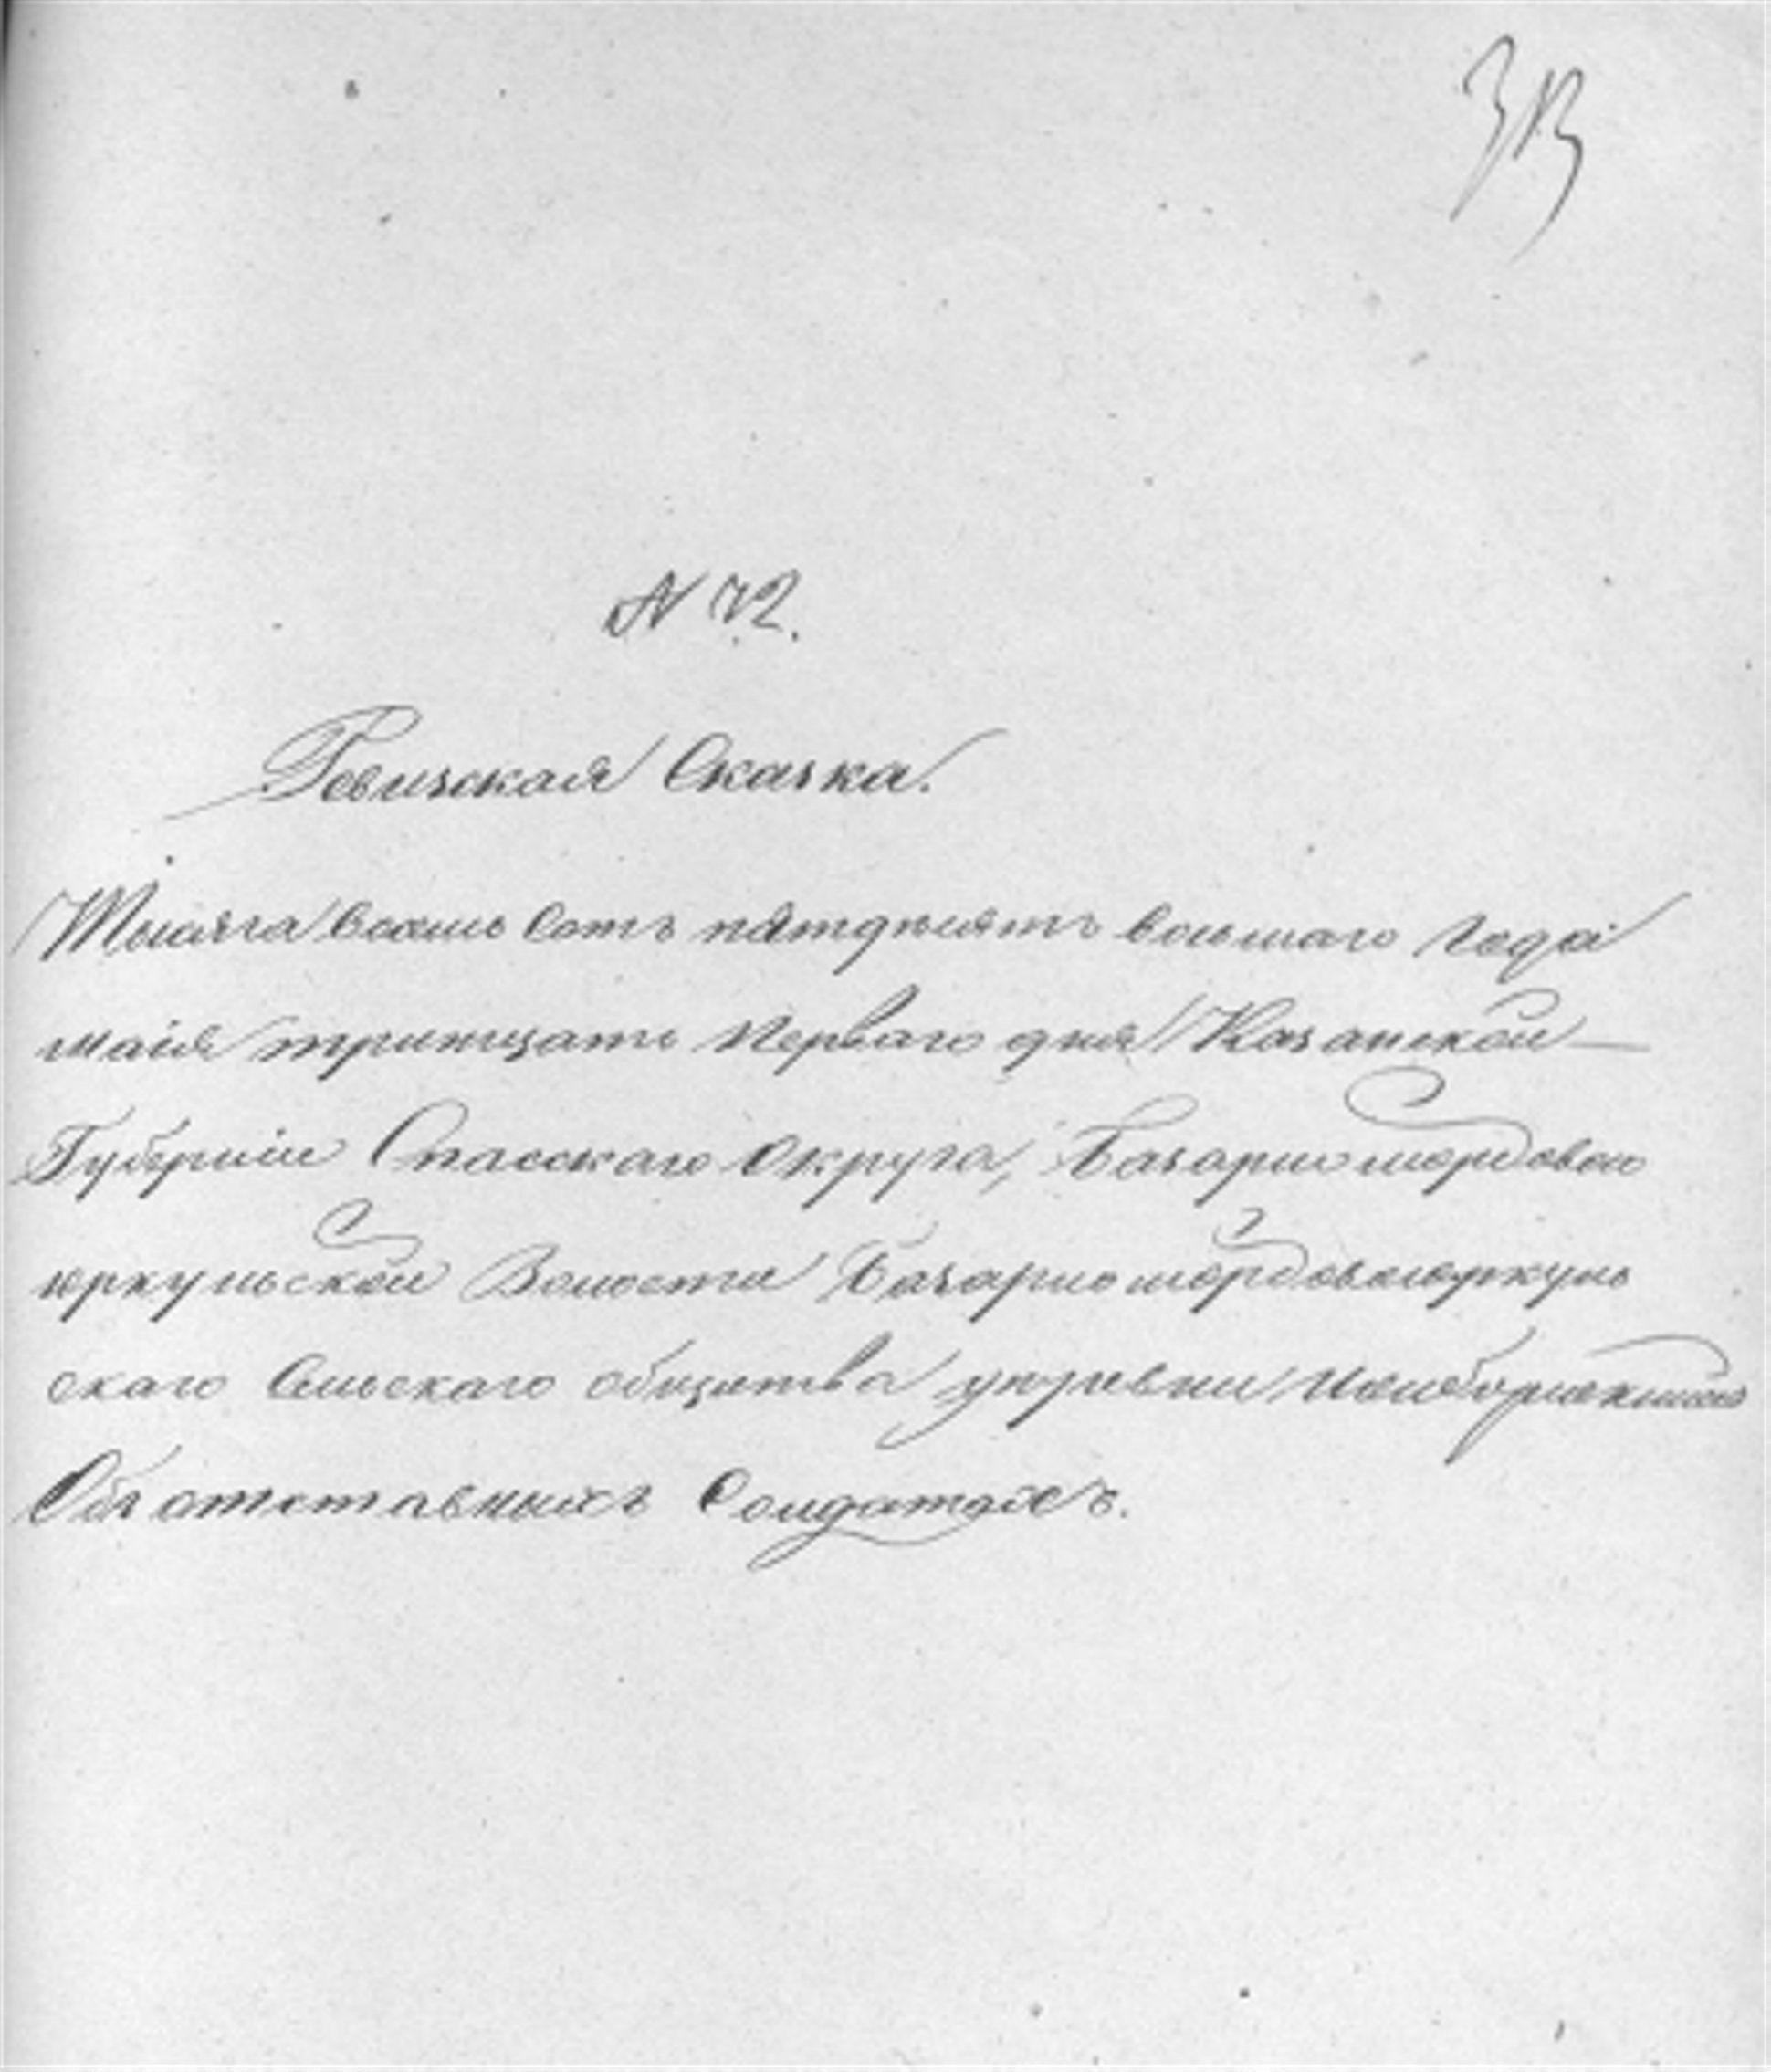 N 72.
Ревизская Сказка.
Тысяча восемь Сотъ пятдесятъ восьмаго Года
маія тритцать Перваго дня Казанской
Губерніи Спасскаго Округа, Базарно мордово
юркульской Волости Базарно мордовоюркуль
скаго Сельскаго общества деревни
Объ отставныхъ Солдатахъ.